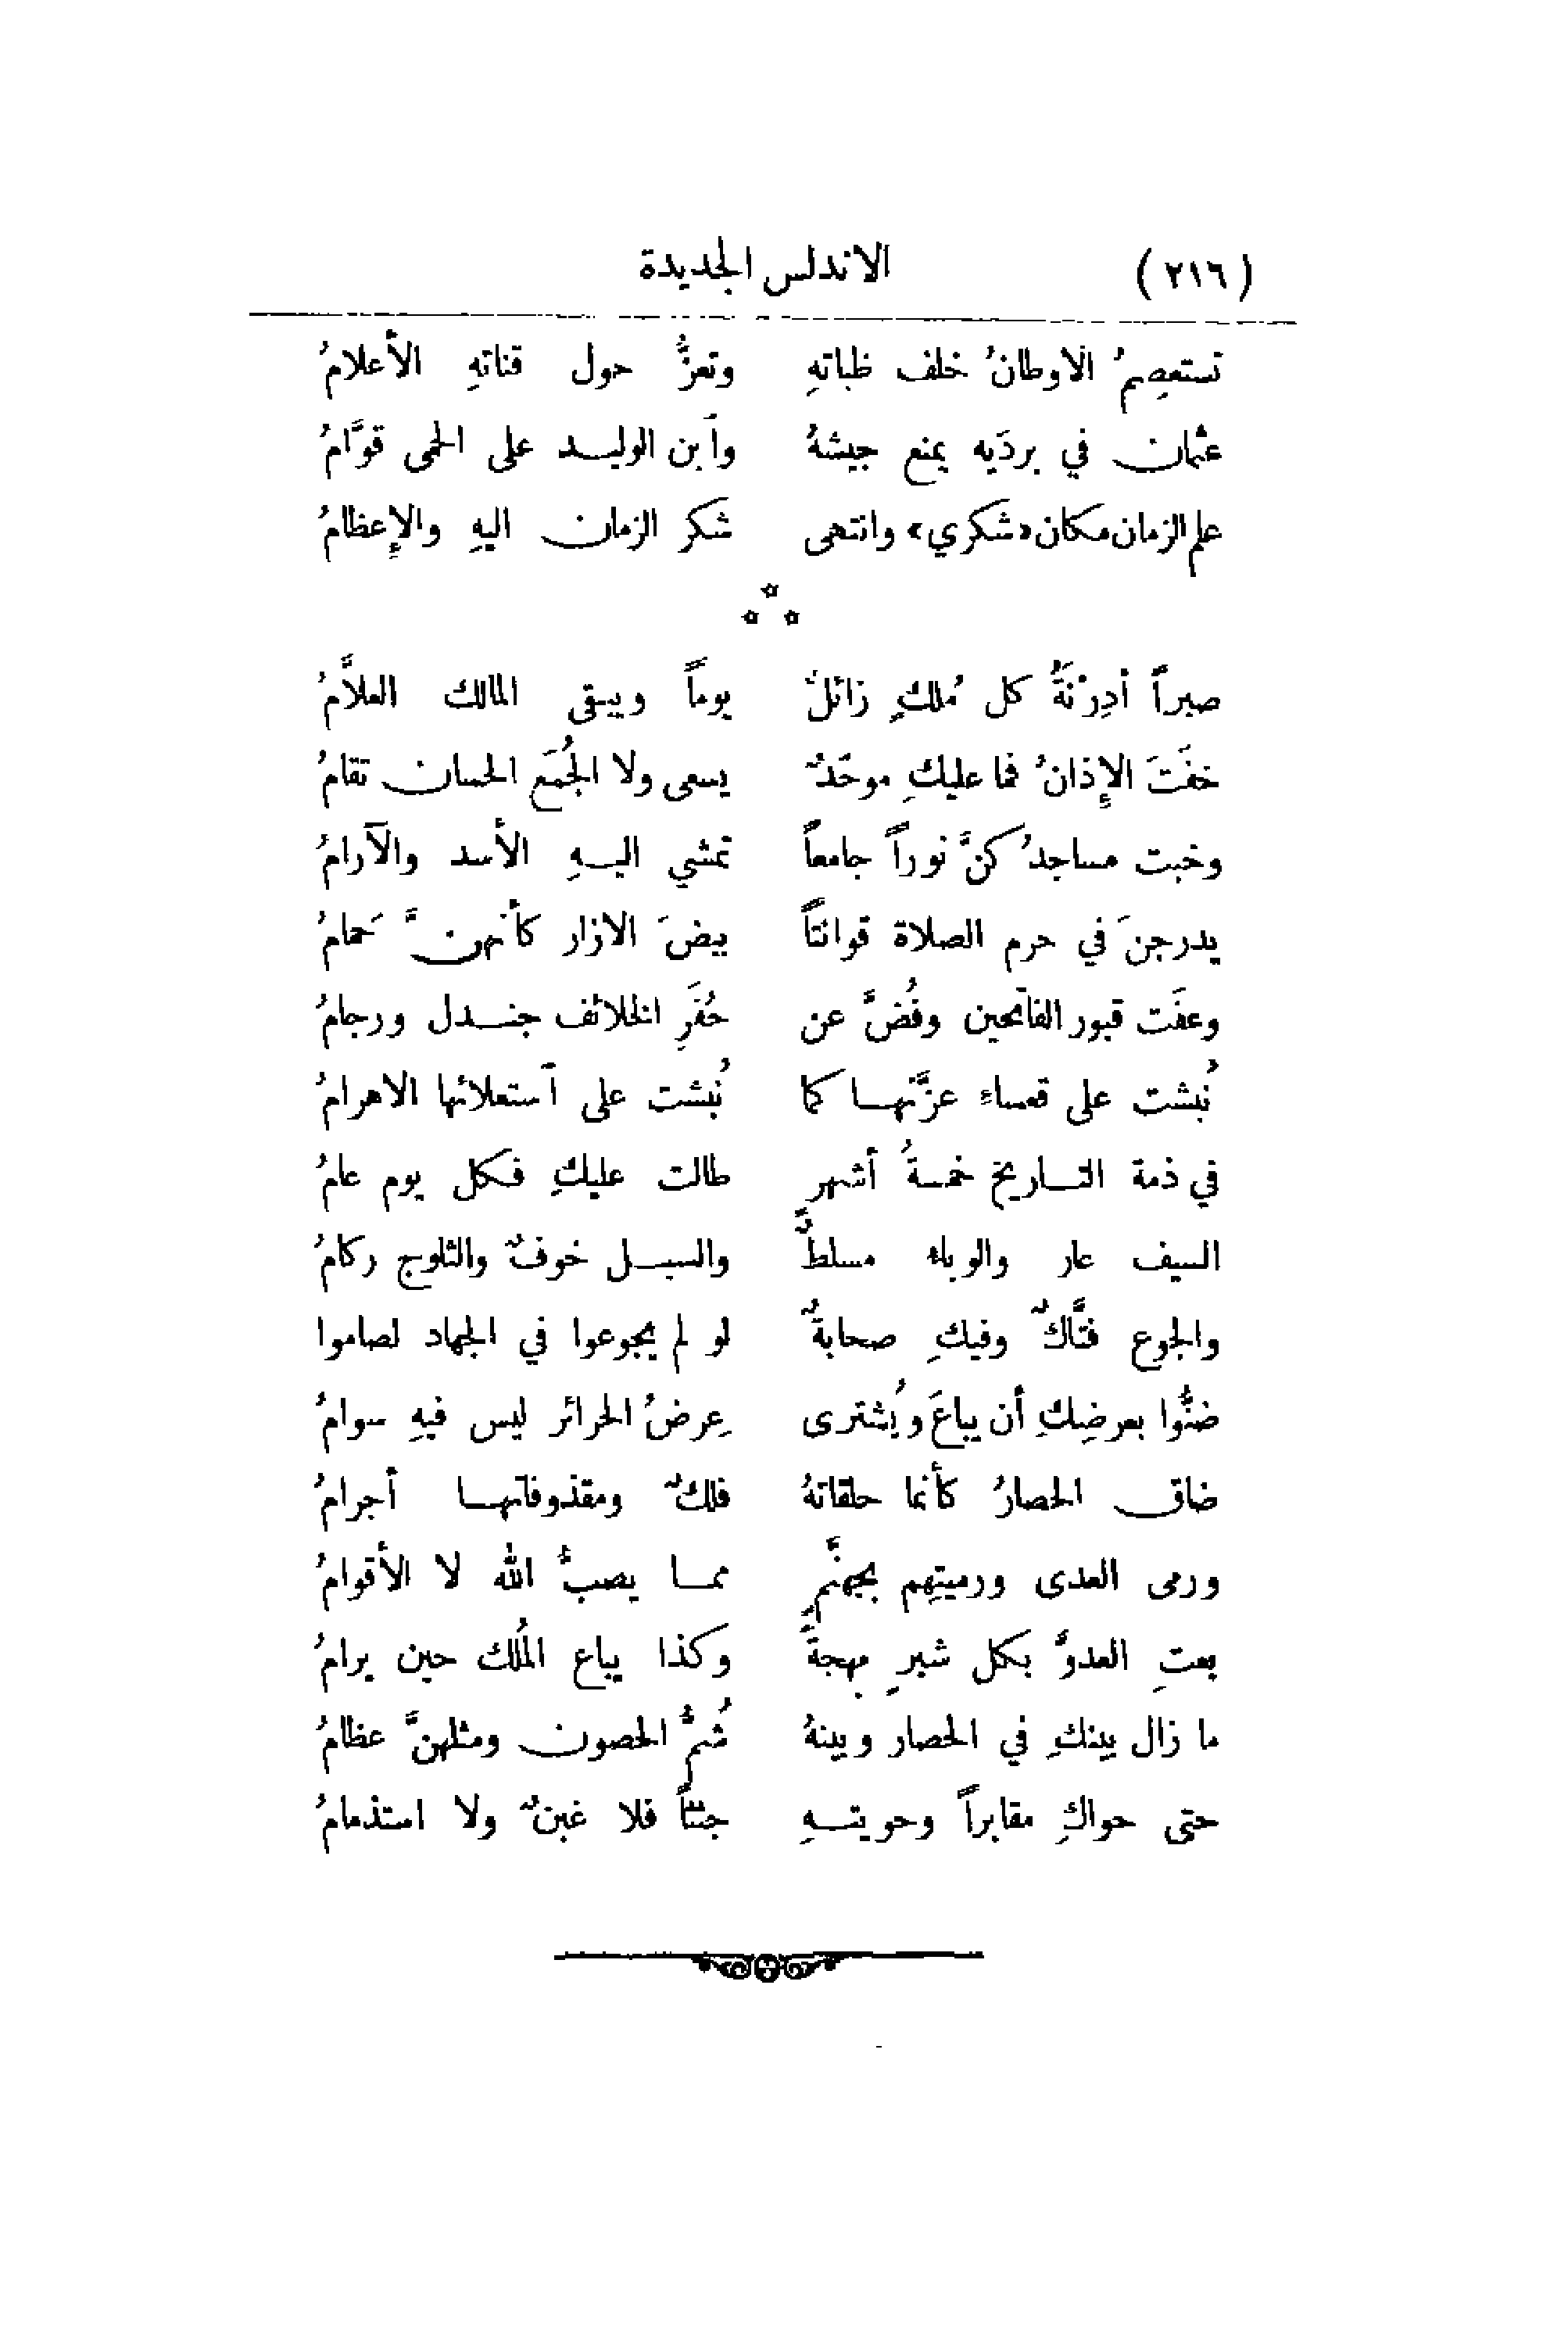 (٢١٦) الاندلس الجديدة
تستعصِمُ الاوطانُ خلف ظباتهِ وتعزُّ حول قناتهِ الأعلامُ
عثمان في بردَيه يمنع جيشهُ وآبن الوليد على الحمى قوَّامُ
علم الزمان مكان «شكري» وانتهى شكر الزمان اليهِ والإِعظامُ
* * *
صبراً أدِرْنَةُ كل مُلكٍ زائلٌ يوماً ويبقى المالك العلاَّمُ
خفَتَ الإِذانُ فما عليكِ موحّدٌ يسعى ولا الجُمَع الحسان تقامُ
وخبت مساجدُ كنَّ نوراً جامعاً تمشي اليهِ الأسد والآرامُ
يدرجنَ في حرم الصلاة قوانتاً بيضَ الازار كأنهنَّ حَمامُ
وعفَت قبور الفاتحين وفُضَّ عن حُفَرِ الخلائف جندل ورجامُ
نُبشت على قعساء عزَّتها كما نُبشت على آستعلائها الاهرامُ
في ذمة التاريخ خمسةُ أشهر طالت عليكِ فكل يوم عامُ
السيف عار والوباء مسلطٌ والسيل خوفٌ والثلوج ركامُ
والجوع فتَّاكٌ وفيكِ صحابةٌ لو لم يجوعوا في الجهاد لصاموا
ضنُّوا بعرضِكِ أن يباعَ ويُشترى عِرضُ الحرائر ليس فيهِ سوامُ
ضاق الحصارُ كأنما حلقاتهُ فلكٌ ومقذوفاتها أجرامُ
ورمى العدى ورميتِهم بجهنَّمٍ مما يصبُّ الله لا الأقوامُ
بعتِ العدوَّ بكل شبرٍ مهجةً وكذا يباع المُلك حين يرامُ
ما زال بينكِ في الحصار وبينهُ شُمُّ الحصون ومثلهنَّ عظامُ
حتى حواكِ مقابراً وحويتهِ جثثاً فلا غبنٌ ولا استذمامُ